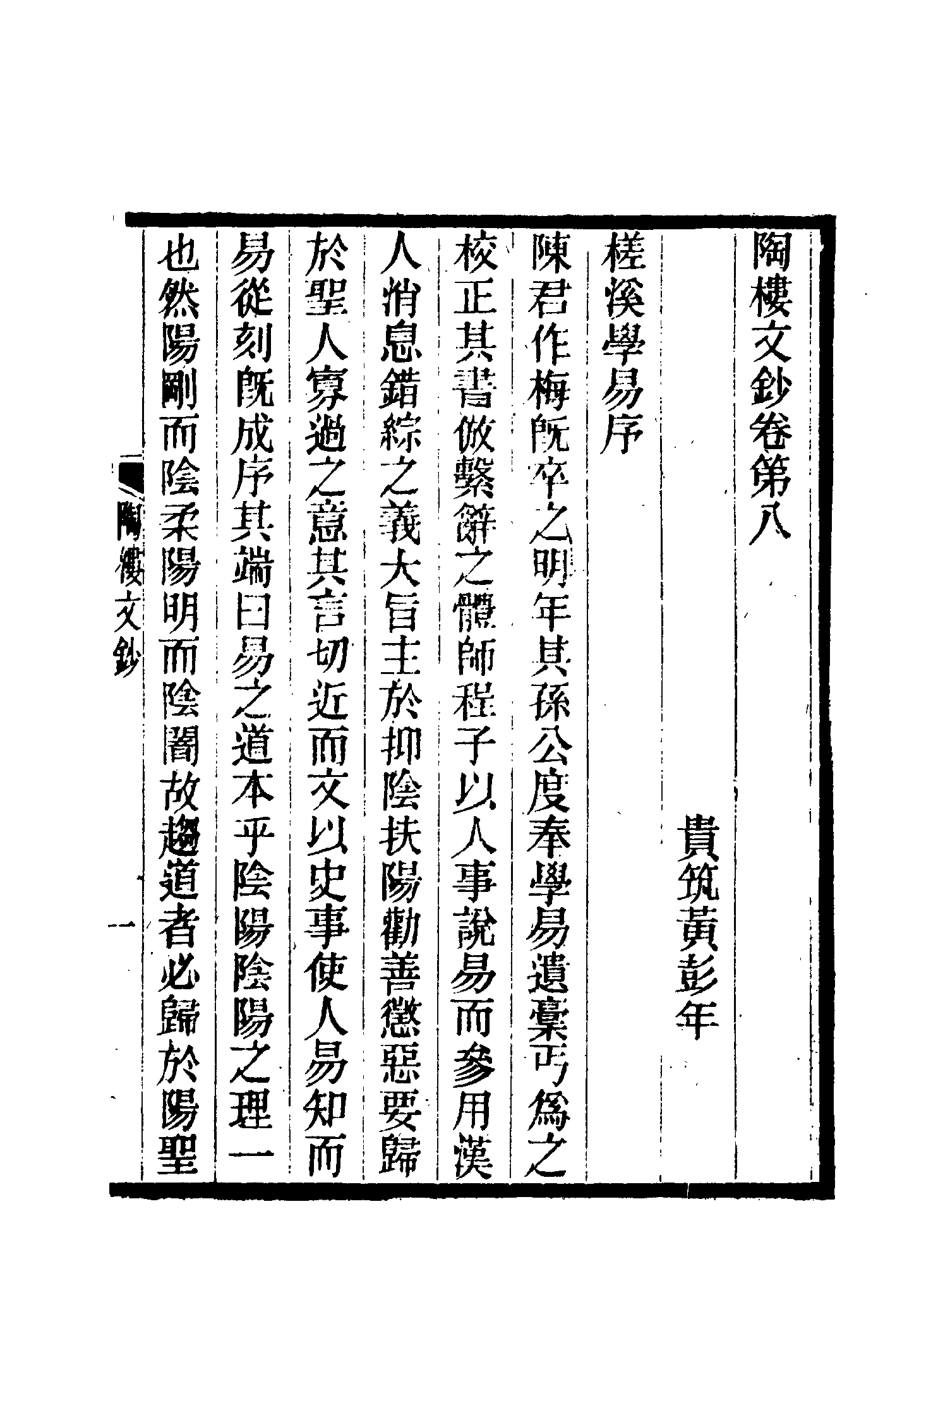 陶樓文鈔卷第八
貴筑黃彭年
槎溪學易序
陳君作梅旣卒之明年其孫公度奉學易遺稾丐爲之
校正其書倣繫辭之體師程子以人事說易而參用漢
人消息錯綜之義大旨主於抑陰扶陽勸善懲惡要歸
於聖人寡過之意其言切近而文以史事使人易知而
易從刻旣成序其端曰易之道本乎陰陽陰陽之理一
也然陽剛而陰柔陽明而陰闇故趨道者必歸於陽聖
陶樓文鈔
一